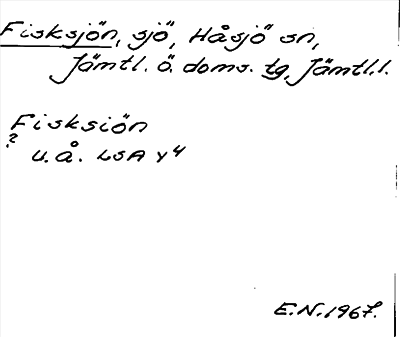 Fisksjön, sjö, Håsjö sn,
Jämtl. ö. doms. tg, Jämtl.l.
Fisksiön
? u.å. LSA Y4
E.N. 1967.